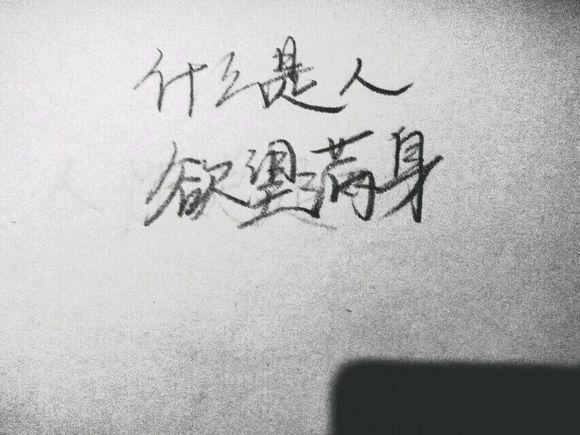 什么是人
欲望满身